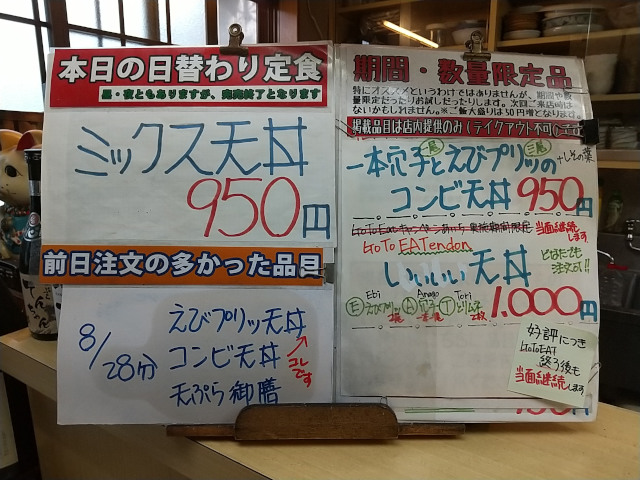 本日の日替わり定食
昼・夜ともありますが、完売終了となります
ミックス天丼
950円
前日注文の多かった品目
8/28分
えびプリッ天丼
コンビ天丼
コレです
天ぷら御膳
期間・数量限定品
特にオススメというわけではありませんが、期間や数
量限定だったりお試しだったりします。次回ご来店時は
ないかもしれません。※ご飯大盛りは50円増となります。
掲載品目は店内提供のみ(テイクアウト不可)です
一本穴子とえびプリッの
+しその葉
コンビ天丼 950円
GoToEatキャンペーン
実施期間限定
当面継続します
GoTo EATendon
いいぃぃ天丼
どなたでも
注文可!!
Ebi
Anago
Tori
E えびプリッ 2尾
A 穴子 一本
T とりムネ 2枚
1,000円
好評につき
GoToEAT
終了後も
当面継続します